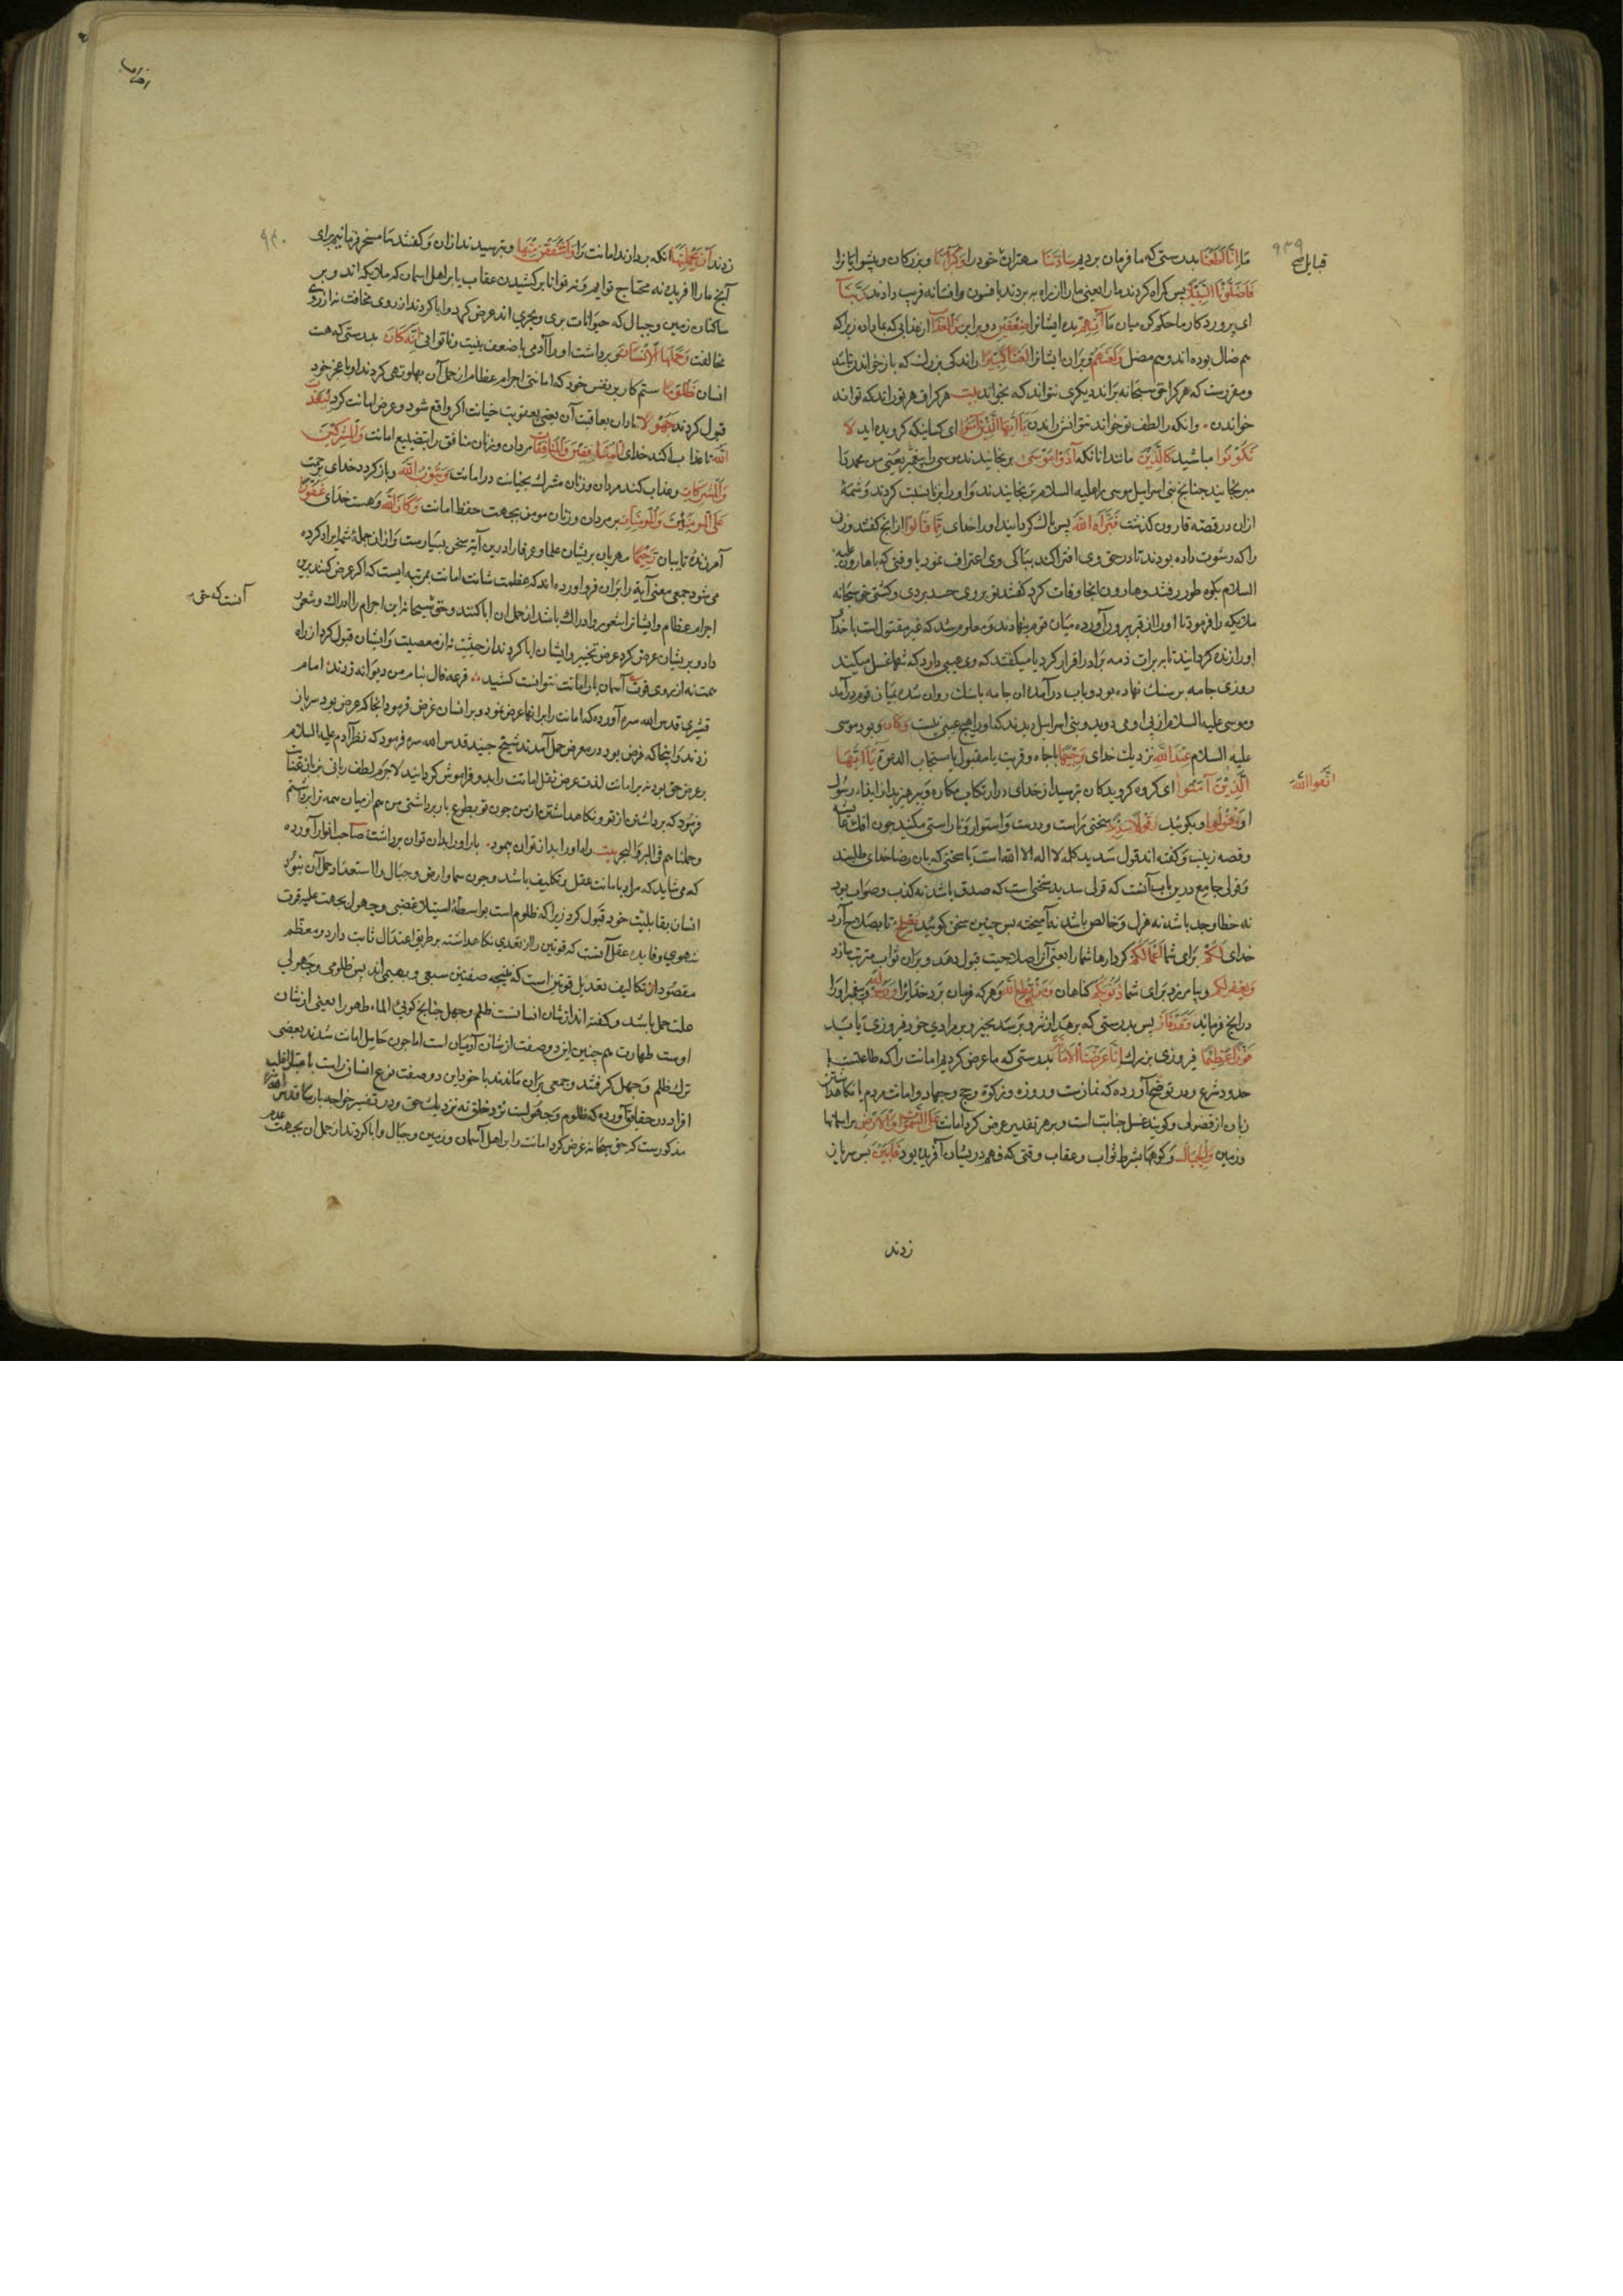 ما انا اطعنا بدرستی که ما فرمان بردیم سادتنا مهتران خود را وکبرآءنا وبزرکان وپیشوایانرا
فاضلونا السبیلا پس کمراه کردند ما را یعنی ما را از راه به بردند بافسون وافسانه فریب دادند ربنا
ای پروردکار ما حکم کن میان ما آتهم بده ایشانرا ضعفین دو برابر من العذاب از عذابی که بما داده زیراکه
هم ضال بوده اند وهم مضل والعنهم وبران ایشانرا لعنا کبیرا راندنی بزرک که باز خواندن نباشد
ومقررست که هرکرا حق سبحانه براند دیکری نتواند که بخواند بیت هرکرا قهر تو راند که تواند
خواندن وانکه را لطف تو خواند نتوانش راندن یآ ایها الذین آمنوا ای کسانیکه کرویده اید لا
تکونوا مباشید کالذین مانند انانکه آذوا موسی برنجانیدند موسی را پیغمبر یعنی من محمد را
مرنجانید چنانچ بنی اسرائیل موسی را علیه السلام برنجانیدند واو را بزنا نسبت کردند وشمهٔ
ازان در قصه قارون کذشت فبرأه الله پس پاک کردانید او را خدای مما قالوا از انچ کفتند وزن
را که رشوت داده بودند تا در حق وی افترا کند بپاکی وی اعتراف نمود یا وقتی که با هارون علیه
السلام بکوه طور رفتند وهارون انجا وفات کرد کفتند تو بر وی حسد بردی وکشتی حق سبحانه
ملائیکه را فرمود تا او را از قبر برون آورده میان قوم بنهادند ومعلوم شد که غیر مقتول است یا خدا
او را زنده کردانید تا به برات ذمه برادر اقرار کرد یا میکفتند که وی عیبی دارد که تنها غسل میکند
روزی جامه بر سنک نهاده بود وباب درآمده ان جامه با سنک روان شده بمیان قوم درآمد
وموسی علیه السلام از پی او می دوید وبنی اسرائیل دیدند که او را هیچ عیبی نیست وکان وبود موسی
علیه السلام عند الله نزدیک خدای وجیها با جاه وقربت یا مقبول یا مستجاب الدعوة یآ ایها
الذین آمنوا ای کروه کرویدکان بترسید از خدای در ارتکاب مکاره وبپرهیزید از ایذاء رسول
او وقولوا وبکوئید قولا سدیدا سخنی راست ودرست واستوار ونا راستی مکنید چون افک عایشه
وقصه زینب وکفته اند قول سدید کلمه لا اله الا الله است یا سخنی که بان رضا خدای طلبند
وقولی جامع درین باب آنست که قولی سدید سخنی است که صدق باشد نه کذب وصواب بود
نه خطا وجد باشد نه هزل وخالص باشد نه آمیخته پس چنین سخن کوئید یصلح تا بصلاح آرد
خدای لکم برای شما اعمالکم کردارها شما را یعنی آنرا صلاحیت قبول دهد وبران ثواب مترتب سازد
ویغفر لکم وبیامرزد برای شما ذنوبکم کناهان ومن یطع الله وهرکه فرمان برد خدایرا ورسوله وپیغمبر او را
در انچ فرماید فقد فاز پس بدرستی که برهد از شر وبرسد بخیر وبر مرادی خود فیروزی یابد
فوزا عظیما فیروزی بزرک انا عرضنا الامانة بدرستی که ما عرض کردیم امانت را که طاعتست یا
حدود شرع ودر توضیح آورده که نمازست وروزه وزکوة وحج وجهاد وامانت مردم یا نکاهداشتن
زبان از فضولی وکویند غسل جنابت است وبر هر تقدیر عرض کرد امانت علی السموات والارض بر اسمانها
وزمین والجبال وکوهها بشرط ثواب وعقاب وقتی که فهم در یشان آفریده بود فابین پس سرباز
زدند
قبایل
۹۳۹
اتقوا الله
زدند ان یحملنها انکه بردارند امانت را واشفقن منها وبترسیدند ازان وکفتند ما مسخر فرمانیم برای
آنچ ما را آفریده نه محتاج ثوابیم ونه توانا بر کشیدن عقاب یا بر اهل اسمان که ملائکه اند وبر
ساکنان زمین وجبال که حیوانات بری وبحری اند عرض کرد وابا کردند از روی مخافت نه از روی
مخالفت وحملها الانسان وبرداشت او را آدمی با ضعف بنیت وناتوانی انه کان بدرستی که هست
انسان ظلوما ستمکار بر نفس خود که امانتی اجرام عظام از حمل آن پهلو تهی کردند او با عجز خود
قبول کرد جهولا نادان بعاقبت آن یعنی بعقوبت خیانت اکر واقع شود وعرض امانت کرد لیعذب
الله تا عذاب کند خدای المنافقین والمنافقات مردان وزنان منافق را بتضییع امانت والمشرکین
والمشرکات وعذاب کند مردان وزنان مشرک بخیانت در امانت ویتوب الله وباز کردد خدای برحمت
علی المومنین والمومنات بر مردان وزنان مومن بجهت حفظ امانت وکان الله وهست خدای غفورا
آمرزندهٔ تایبان رحیما مهربان بریشان علما وعرفا را درین آیة سخن بسیارست وازان جملهٔ شمه ایراد کرده
می شود جمعی معنی آیة را بران فرود آورده اند که عظمت شانت امانت بمرتبه ایست که اکر عرض کنند برین
اجرام عظام وایشانرا شعور وادراک باشد از حمل ان ابا کنند وحق سبحانه این اجرام را ادراک وشعور
داد وبریشان عرض کرد عرض تخییر وایشان ابا کردند از حیثیت نه از معصیت وانسان قبول کرد از راه
همت نه از روی قوت آسمان بار امانت نتوانست کشید قرعه فال بنام من دیوانه زدند امام
قشیری قدس الله سره آورده که امانت را برانها عرض نمود وبر انسان فرض فرمود انجا که عرض بود سرباز
زدند وانجا که فرض بود در معرض حمل آمدند شیخ جنید قدس الله سره فرمود که نظر آدم علیه السلام
بر عرض حق بود نه بر امانت لذت عرض ثقل امانت را بدو فراموش کردانید لاجرم لطف ربانی بزبان عنایت
فرمود که برداشتن از تو ونکاهداشتن از من چون تو بطوع بار برداشتی من هم از میان همه ترا برداشتم
وحملناهم فی البر والبحر بیت راه او را بدانتوان پیمود بار او را بدان توان برداشت صاحب انوار آورده
که می شاید که مراد بامانت عقل وتکلیف باشد وچون سما وارض وجبال را استعداد حمل آن نبود
انسان بقابلیت خود قبول کرد زیراکه ظلوم است بواسطهٔ استیلا غضبی وجهول بجهت غلبه قوت
شهوی وفایده عقل آنست که قوتین را از تعدی نکاهداشته بر طریق اعتدال ثابت دارد ومعظم
مقصود از تکالیف تعدیل قوتین است که نتیجه صفتین سبعی وبهیمی اند پس ظلومی وجهولی
علت حمل باشد وکفته اند از شان انسانست ظلم وجهل چنانچ کوئی الماء طهور یعنی از شان
اوست طهارت همچنین این دو صفت از شان آدمیان است اما چون حامل امانت شدند بعضی
ترک ظلم وجهل کرفتند وجمعی بران ماندند یا خود این دو صفت نوع انسانی است باعتبار اغلب
افراد در حقایق آورده که ظلوم وجهولست نزد خلق نه نزدیک حق ودر تفسیر خواجه پارسا قدس الله سره
مذکورست که حق سبحانه عرض کرد امانت را بر اهل آسمان وزمین وجبال وابا کردند از حمل ان بجهت عدم
۹۴۰
آنست که حق